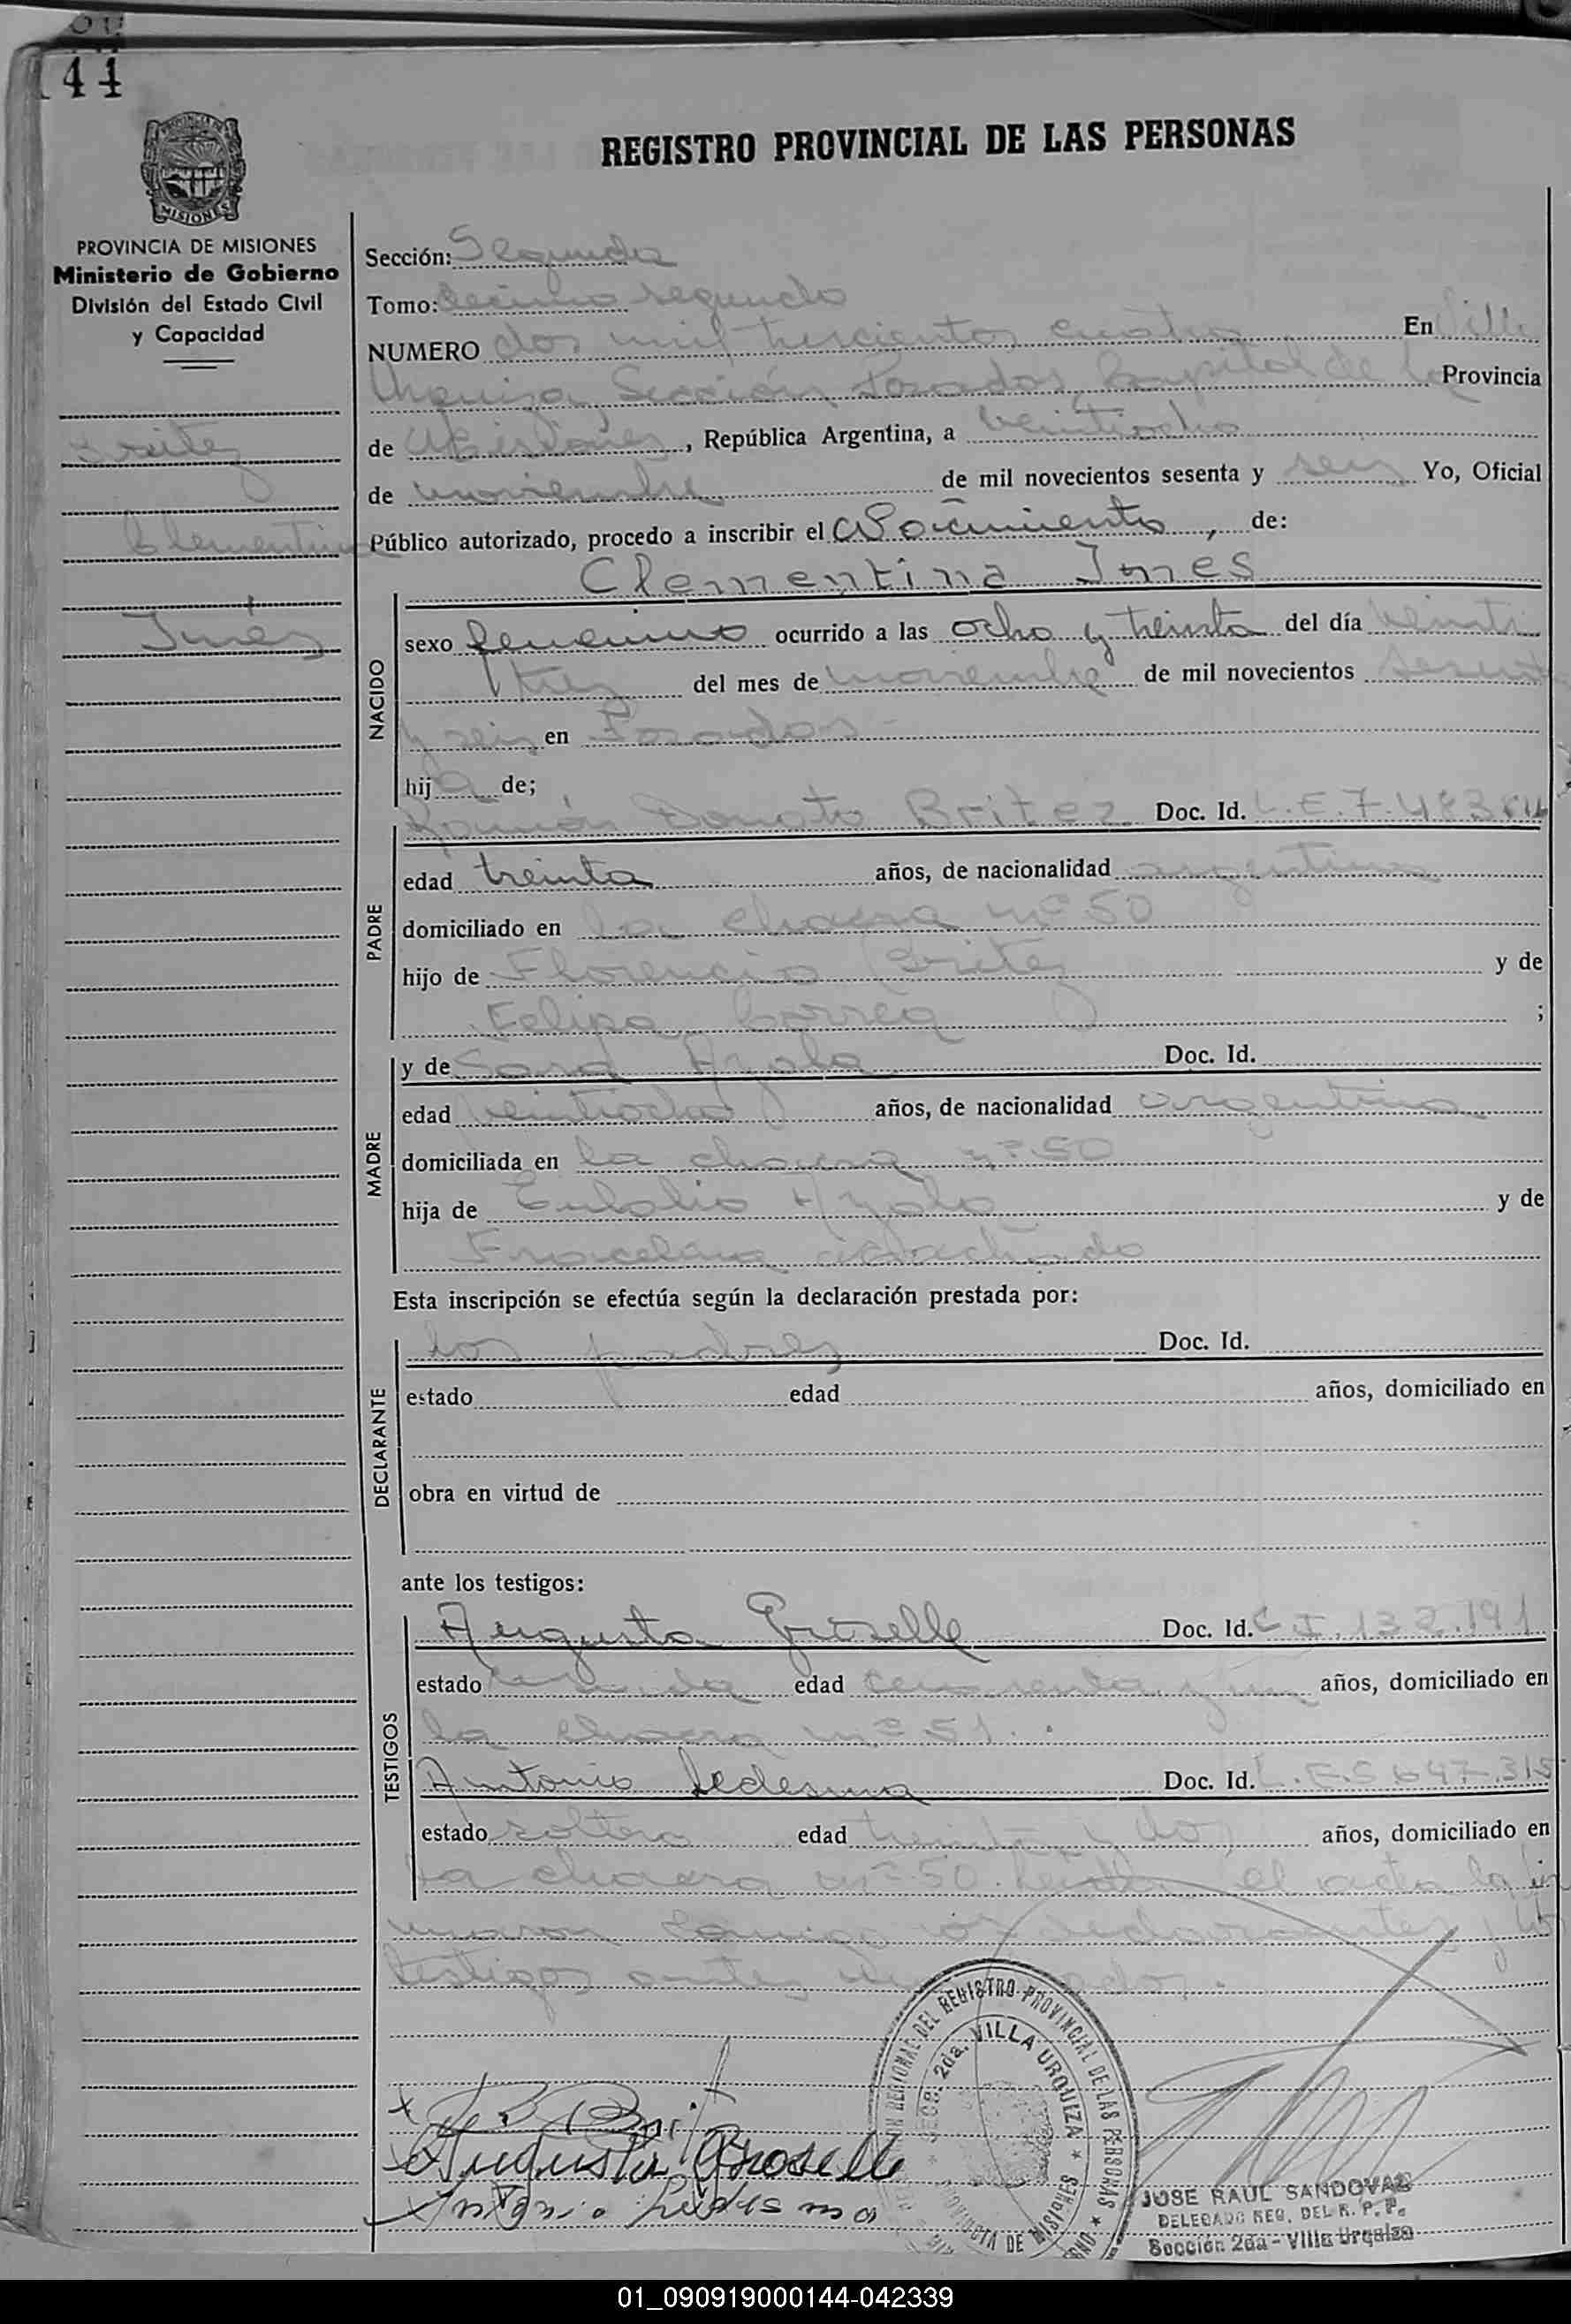 144
REGISTRO PROVINCIAL DE LAS PERSONAS
MISIONES
PROVINCIA DE MISIONES
Ministerio de Gobierno
División del Estado Civil
y Capacidad
Britez
Clementina
Inés
Sección: Segunda
Tomo: decimo segundo
NUMERO dos mil trescientos cuatro En Villa
Urquiza, Sección Posadas Capital de la Provincia
de Misiones, República Argentina, a veintiocho
de noviembre de mil novecientos sesenta y seis Yo, Oficial
Público autorizado, procedo a inscribir el Nacimiento, de:
Clementina Ines
NACIDO
sexo femenino ocurrido a las ocho y treinta del día veinti
tres del mes de noviembre de mil novecientos sesenta
y seis en Posadas
hija de;
PADRE
Ramón Donato Britez Doc. Id. L.E.7.483.
edad treinta años, de nacionalidad argentina
domiciliado en la chacra nº 50
hijo de Florencio Britez y de
Felipa Correa ;
MADRE
y de Sara Ayala Doc. Id.
edad veintiocho años, de nacionalidad argentina
domiciliada en la chacra nº 50
hija de Eulalio Ayala y de
Esta inscripción se efectúa según la declaración prestada por:
DECLARANTE
los padres Doc. Id.
estado edad años, domiciliado en
obra en virtud de
ante los testigos:
TESTIGOS
Augusta Groselle Doc. Id. C.I.132.191
estado edad años, domiciliado en
la chacra nº 51.
Antonio Ledesma Doc. Id. L.E.5 647.315
estado soltero edad treinta y dos años, domiciliado en
la chacra nº 50. Leida el acta la fir
maron conmigo los declarantes y los
testigos antes
Augusta Groselle
Antonio Ledesma
REGIONAL DEL REGISTRO PROVINCIAL DE LAS PERSONAS
SECC. 2da. VILLA URQUIZA
PROVINCIA DE MISIONES
JOSE RAUL SANDOVAL
DELEGADO REG. DEL R. P. P.
Sección 2da - Villa Urquiza
01_090919000144-042339